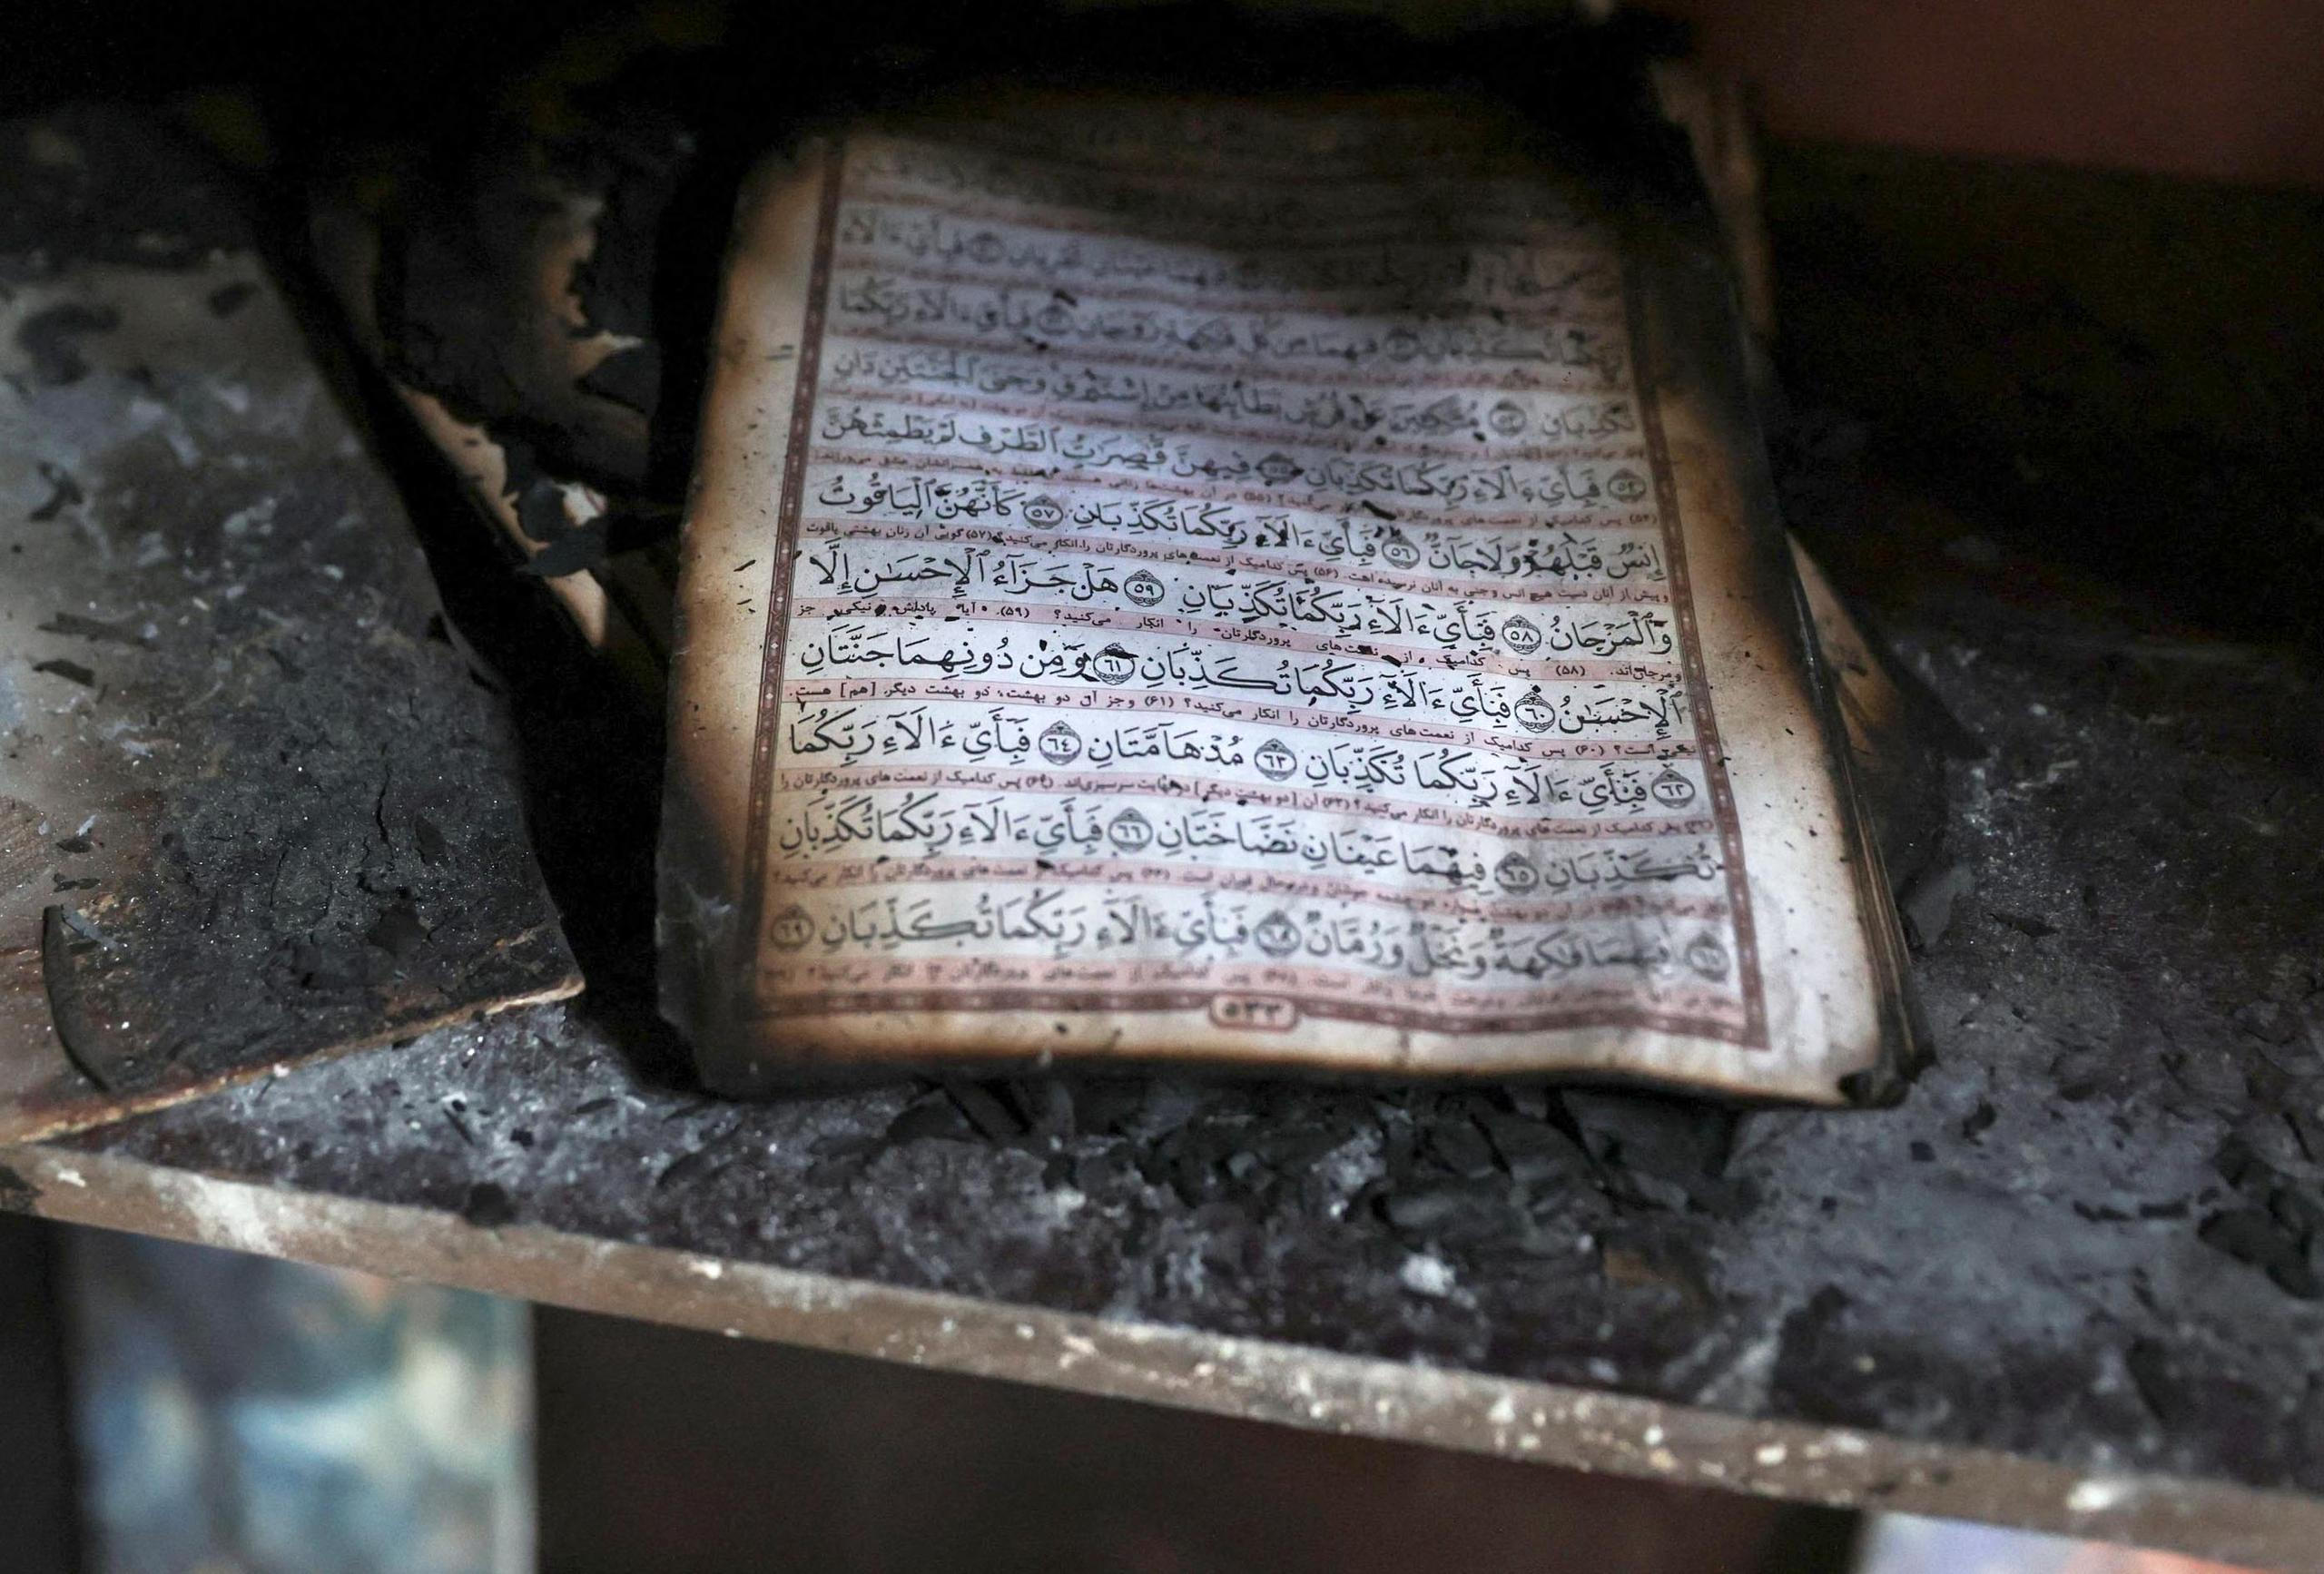 فِيهِمَا عَيْنَانِ تَجْرِيَانِ ۝ فَبِأَيِّ ءَالَآءِ
رَبِّكُمَا تُكَذِّبَانِ ۝ فِيهِمَا مِن كُلِّ فَٰكِهَةٍ زَوْجَانِ ۝ فَبِأَيِّ ءَالَآءِ رَبِّكُمَا
تُكَذِّبَانِ ۝ مُتَّكِـِٔينَ عَلَىٰ فُرُشٍۭ بَطَآئِنُهَا مِنْ إِسْتَبْرَقٍ وَجَنَى ٱلْجَنَّتَيْنِ دَانٍ
٥٤ فَبِأَيِّ ءَالَآءِ رَبِّكُمَا تُكَذِّبَانِ ٥٥ فِيهِنَّ قَٰصِرَٰتُ ٱلطَّرْفِ لَمْ يَطْمِثْهُنَّ
(۵۴) پس کدامیک از نعمت‌های پروردگارتان را انکار می‌کنید؟ (۵۵) در آن بهشت‌ها زنانی هستند که
إِنسٌ قَبْلَهُمْ وَلَا جَآنٌّ ٥٦ فَبِأَيِّ ءَالَآءِ رَبِّكُمَا تُكَذِّبَانِ ٥٧ كَأَنَّهُنَّ ٱلْيَاقُوتُ
و پیش از آنان دست هیچ انس و جنی به آنان نرسیده است. (۵۶) پس کدامیک از نعمت‌های پروردگارتان را انکار می‌کنید؟ (۵۷) گویی آن زنان بهشتی یاقوت
وَٱلْمَرْجَانُ ٥٨ فَبِأَيِّ ءَالَآءِ رَبِّكُمَا تُكَذِّبَانِ ٥٩ هَلْ جَزَآءُ ٱلْإِحْسَٰنِ إِلَّا
و مرجان‌اند. (۵۸) پس کدامیک از نعمت‌های پروردگارتان را انکار می‌کنید؟ (۵۹) آیا پاداش نیکی جز
ٱلْإِحْسَٰنُ ٦٠ فَبِأَيِّ ءَالَآءِ رَبِّكُمَا تُكَذِّبَانِ ٦١ وَمِن دُونِهِمَا جَنَّتَانِ
نیکی است؟ (۶۰) پس کدامیک از نعمت‌های پروردگارتان را انکار می‌کنید؟ (۶۱) و جز آن دو بهشت، دو بهشت دیگر [هم] هست.
٦٢ فَبِأَيِّ ءَالَآءِ رَبِّكُمَا تُكَذِّبَانِ ٦٣ مُدْهَآمَّتَانِ ٦٤ فَبِأَيِّ ءَالَآءِ رَبِّكُمَا
(۶۲) پس کدامیک از نعمت‌های پروردگارتان را انکار می‌کنید؟ (۶۳) آن [دو بهشت دیگر] در نهایت سرسبزی‌اند. (۶۴) پس کدامیک از نعمت‌های پروردگارتان را
تُكَذِّبَانِ ٦٥ فِيهِمَا عَيْنَانِ نَضَّاخَتَانِ ٦٦ فَبِأَيِّ ءَالَآءِ رَبِّكُمَا تُكَذِّبَانِ
(۶۶) پس کدامیک از نعمت‌های پروردگارتان را انکار می‌کنید؟
فِيهِمَا فَٰكِهَةٌ وَنَخْلٌ وَرُمَّانٌ ٦٨ فَبِأَيِّ ءَالَآءِ رَبِّكُمَا تُكَذِّبَانِ ٦٩
پس کدامیک از نعمت‌های پروردگارتان را انکار می‌کنید؟
٥٣٣